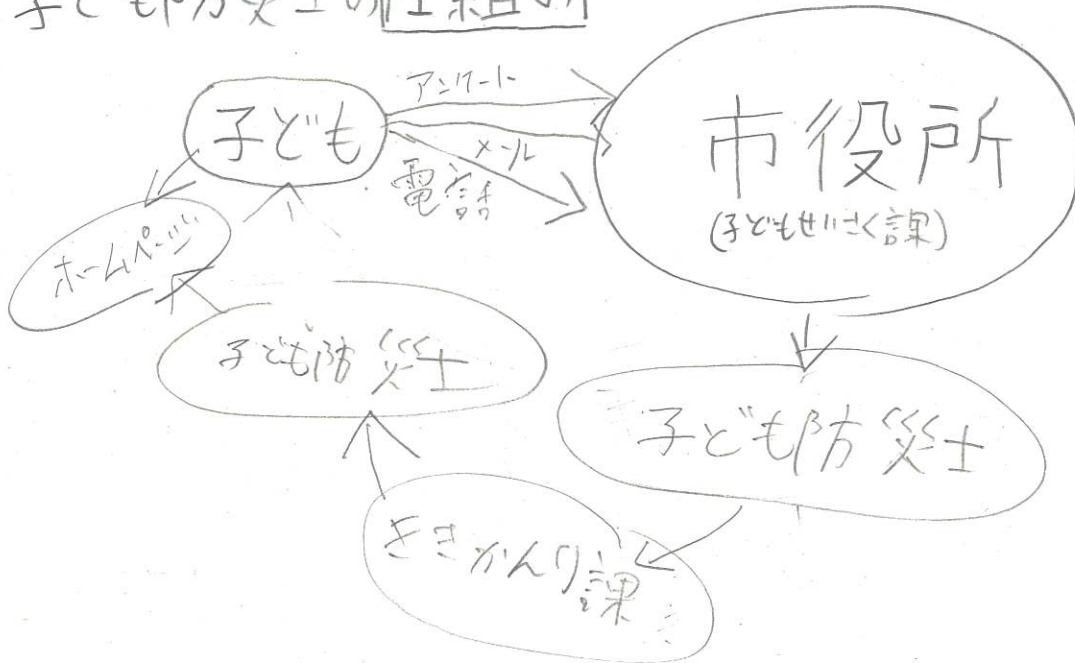 子ども防災士の仕組み
子ども
アンケート
メール
電話
市役所
(子どもせいさく課)
ホームページ
子ども防災士
子ども防災士
ききかんり課